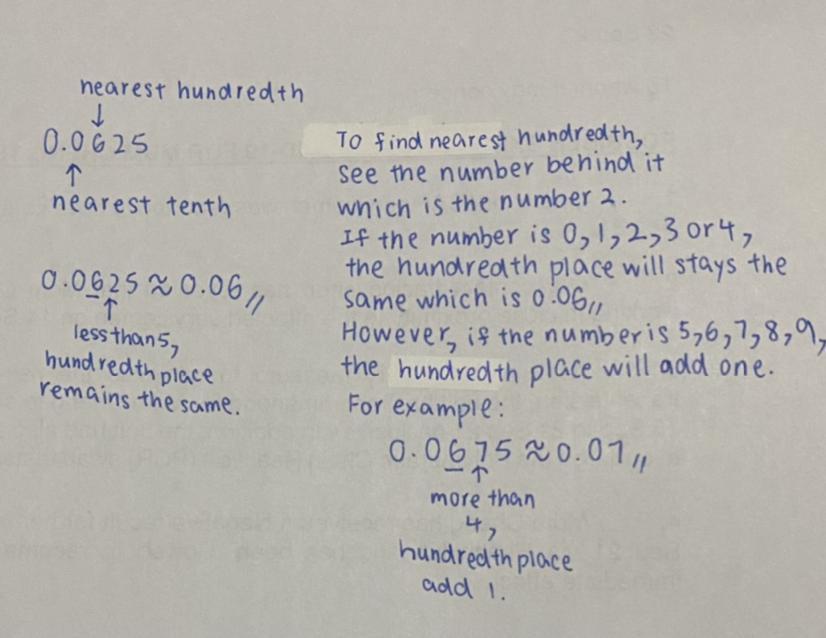 nearest hundredth
↓
0.0625
↑
nearest tenth
0.0625 ≈ 0.06 //
↑
less than 5,
hundredth place
remains the same.
To find nearest hundredth,
see the number behind it
which is the number 2.
If the number is 0,1,2,3 or 4,
the hundredth place will stays the
same which is 0.06 //
However, if the number is 5,6,7,8,9,
the hundredth place will add one.
For example:
0.0675 ≈ 0.07 //
↑
more than
4,
hundredth place
add 1.